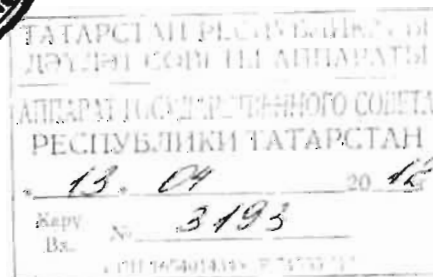 ТАТАРСТАН РЕСПУБЛИКАСЫ
ДӘҮЛӘТ СОВЕТЫ АППАРАТЫ
АППАРАТ ГОСУДАРСТВЕННОГО СОВЕТА
РЕСПУБЛИКИ ТАТАРСТАН
" 13 " 04 20 12 г
Керү
Вх. № 3193